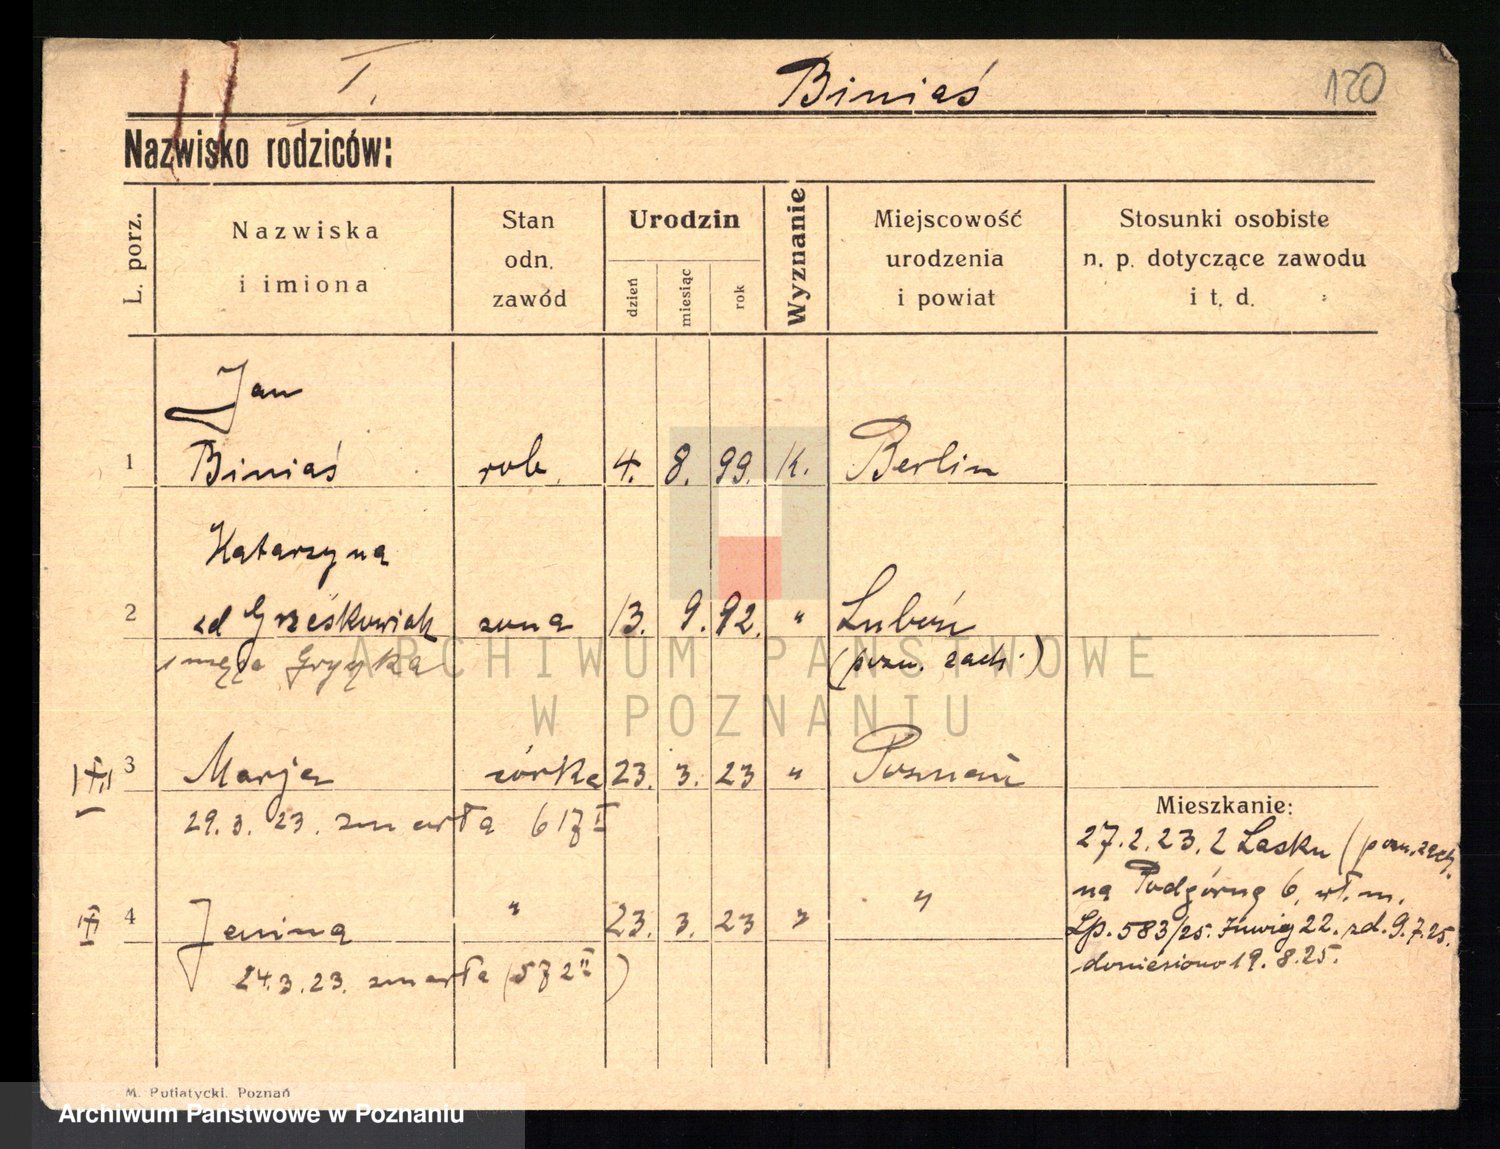 I.
Biniaś
120
Nazwisko rodziców:
L. porz.
Nazwiska
i imiona
Stan
odn.
zawód
Urodzin
dzień
miesiąc
rok
Wyznanie
Miejscowość
urodzenia
i powiat
Stosunki osobiste
n. p. dotyczące zawodu
i t. d.
Jan
1 Biniaś rob. 4. 8. 99. K. Berlin
Katarzyna
2 zd Grześkowiak żona 13. 9. 92. " Luboń
(pozn. zach.)
ARCHIWUM PAŃSTWOWE
W POZNANIU
3 Marja córka 23. 3. 23 " Poznań
29. 3. 23. zmarła
Mieszkanie:
27. 2. 23. z Lasku (pozn. zach.
na Podgórną 6, wł. m.
4 Janina " 23. 3. 23 " "
Lp. 583/25. Żuwig 22. zd. 9.7.25.
doniesiono 19. 8. 25.
24. 3. 23. zmarła
M. Putiatycki. Poznań
Archiwum Państwowe w Poznaniu